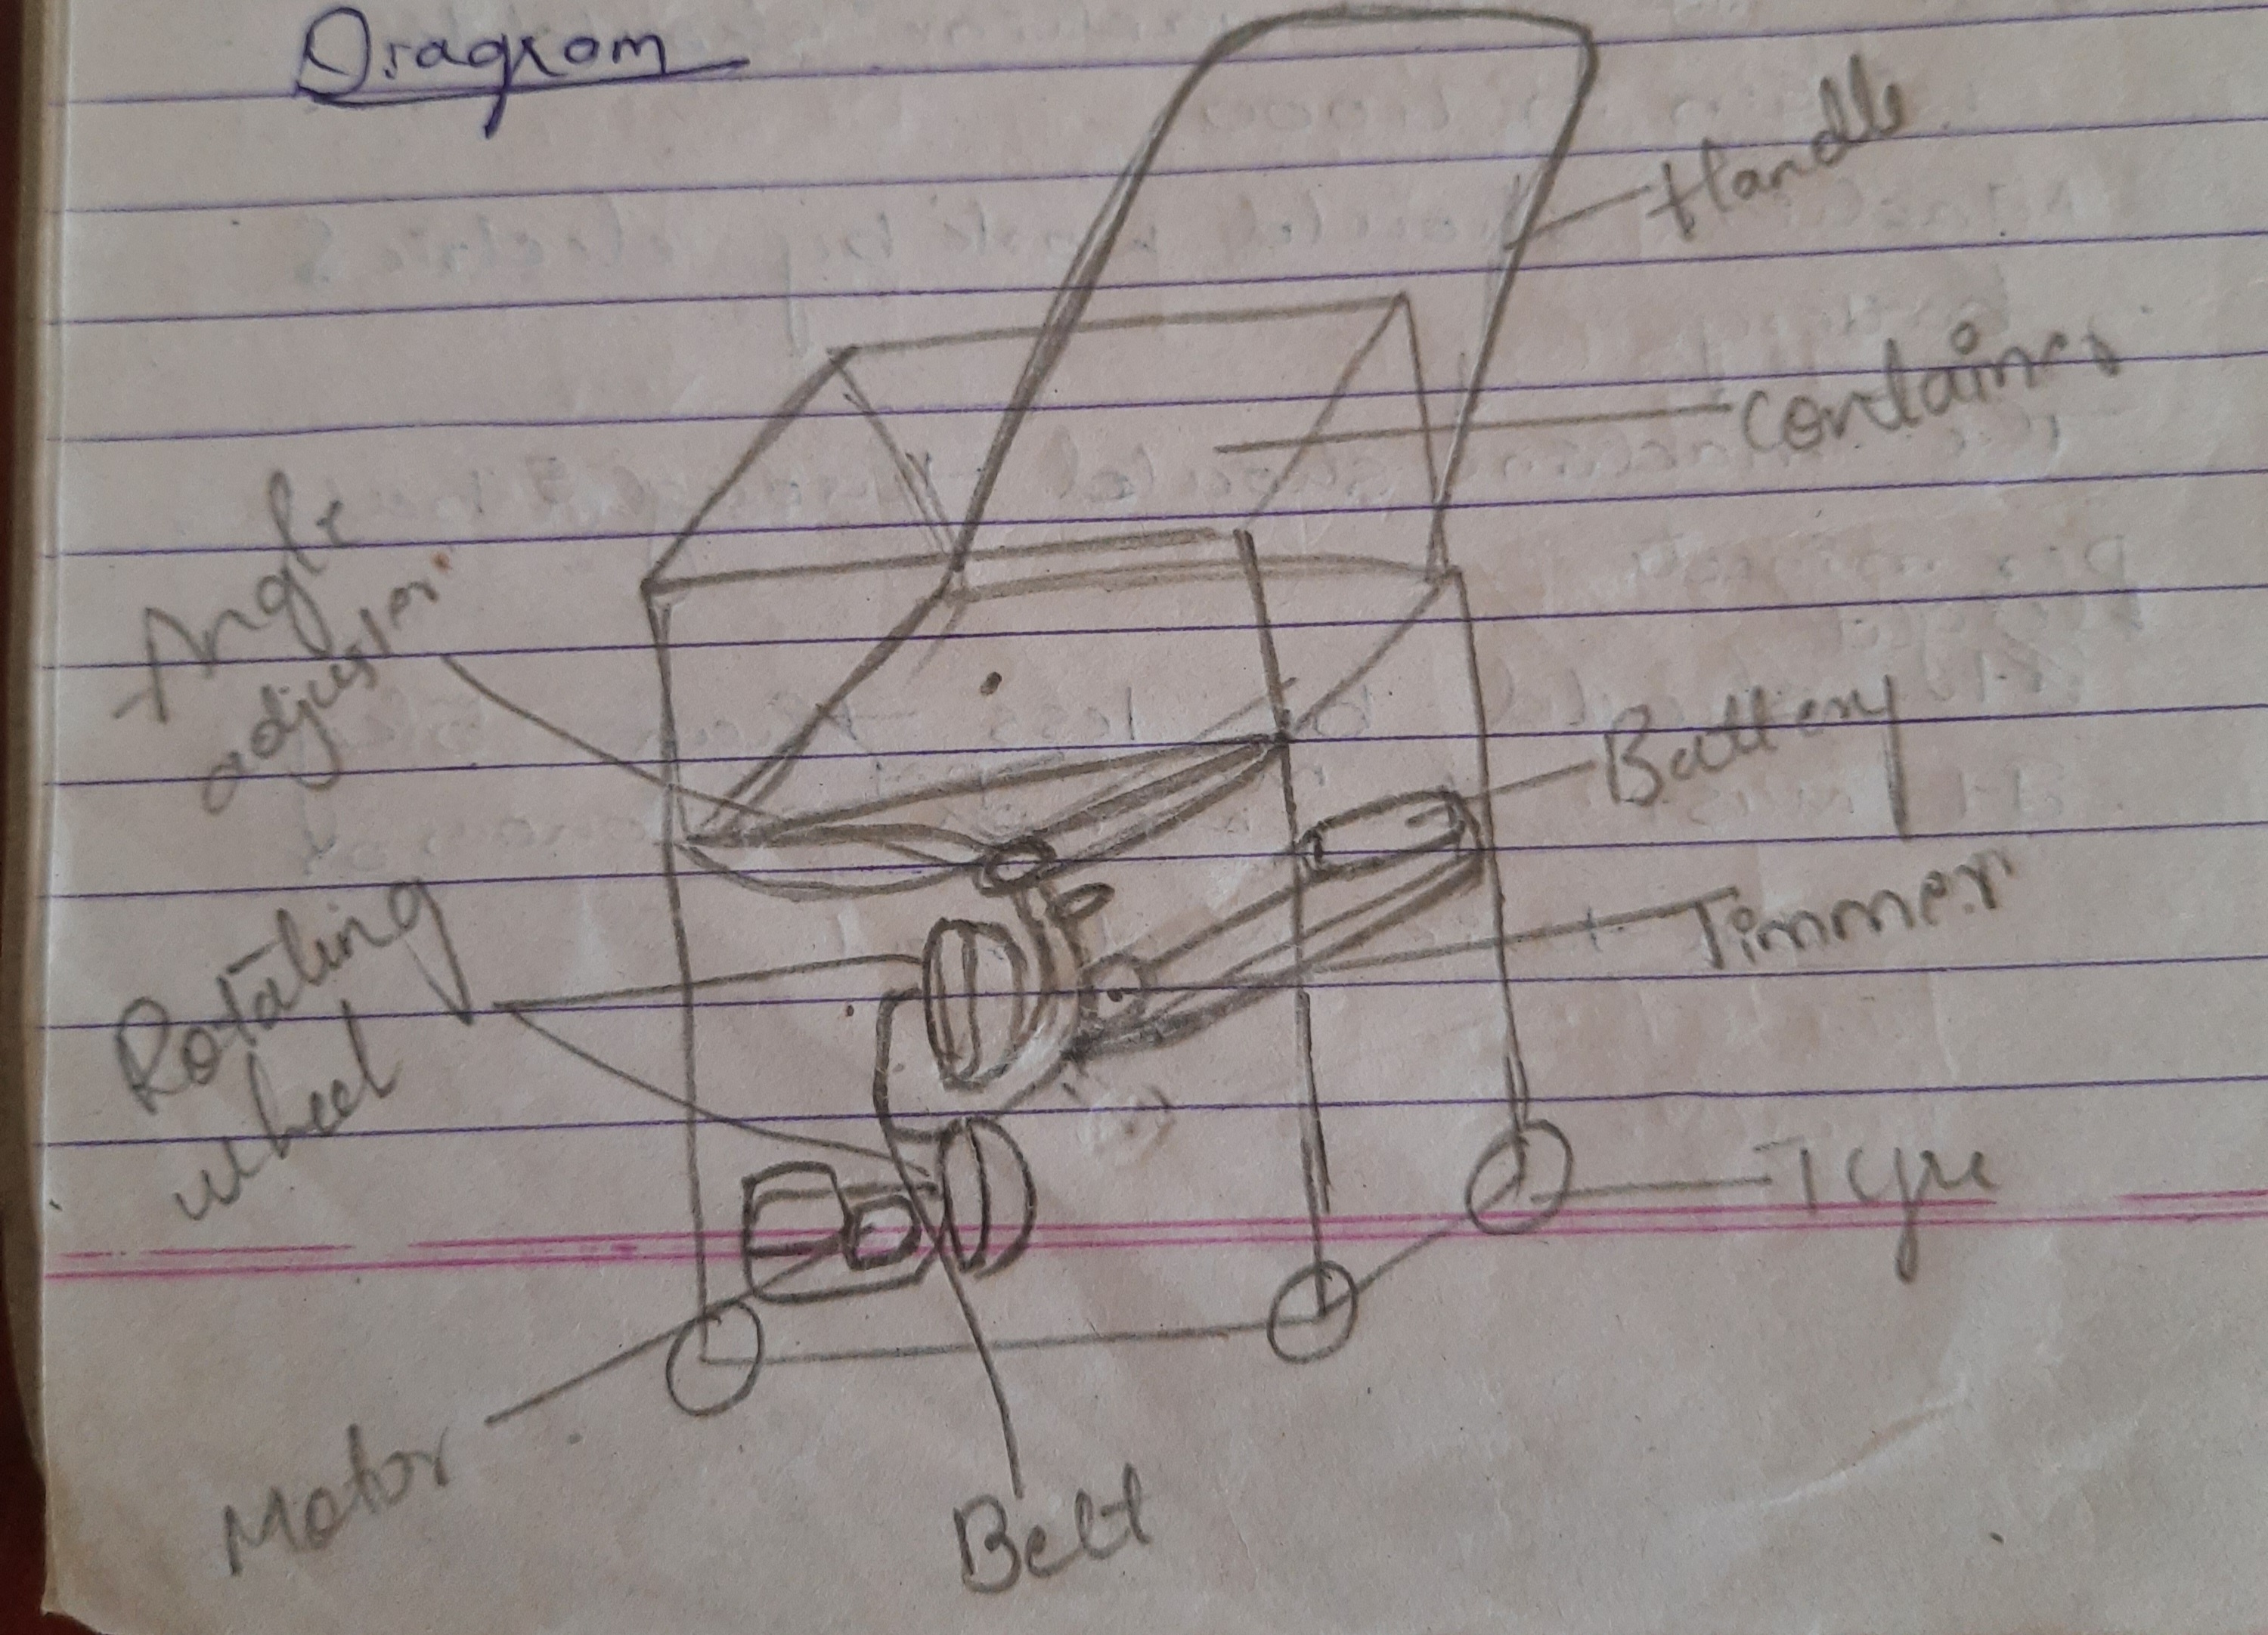 Diagram
Handle
Container
Angle
adjuster
Battery
Timmer
Rotating
wheel
Tyre
Motor
Belt